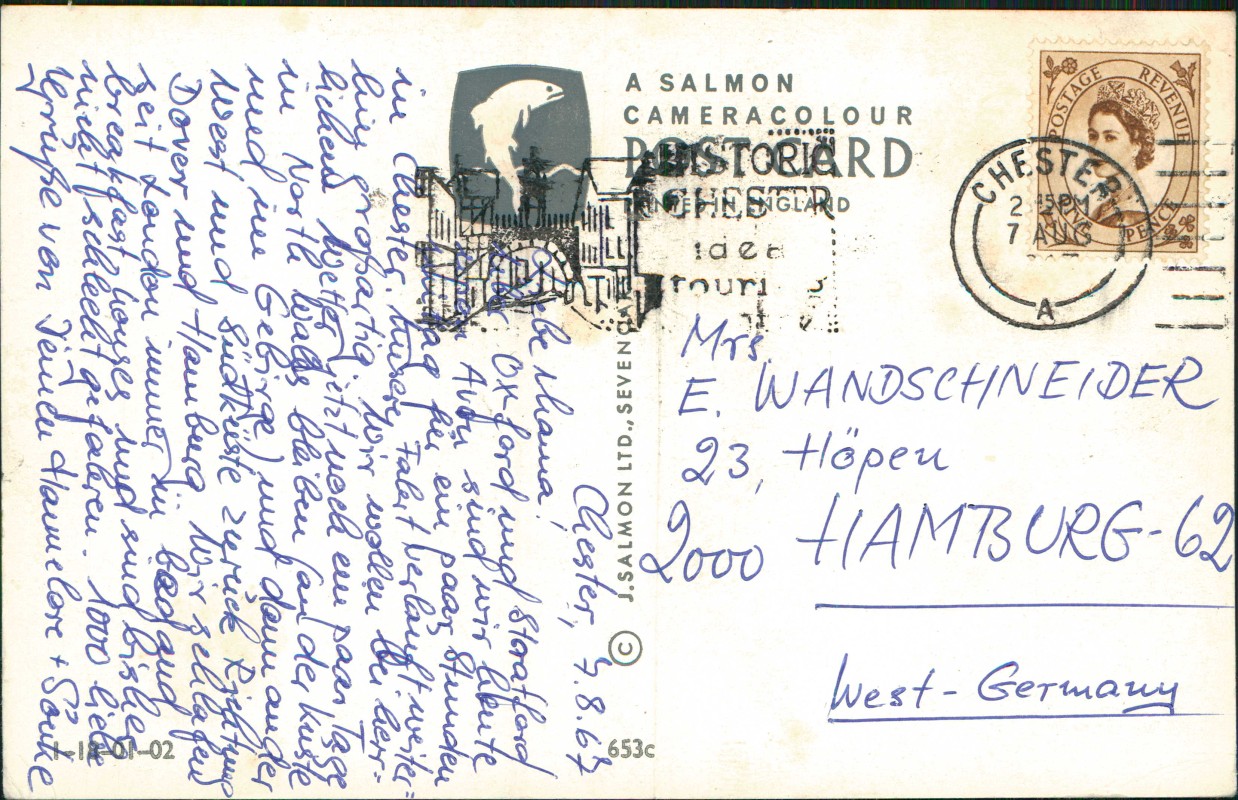 A SALMON
CAMERACOLOUR
POST CARD
PRINTED IN ENGLAND
HISTORIC
CHESTER
idea
touri
POSTAGE REVENUE
PENCE
CHESTER
2 15 PM
7 AUG
A
Mrs.
E. WANDSCHNEIDER
23, Höpen
2000 HAMBURG-62
West-Germany
© J. SALMON LTD., SEVEN
653c
1-18-01-02
Chester, 7.8.67
Liebe Mama!
Oxford und Stratford
Avon sind wir heute
Tag für ein paar Stunden
in Chester. Unsere Fahrt verläuft weiter=
hin großartig. Wir wollen bei herr=
lichem Wetter jetzt noch ein paar Tage
in North Wales bleiben (an der Küste
und im Gebirge) und dann an der
West und Südküste zurück Richtung
Dover und Hamburg. Wir schlafen
seit London immer in bed and
breakfast houses und sind bisher
nicht schlecht gefahren. 1000 liebe
Grüße von Deinen Hannelore + Sönke